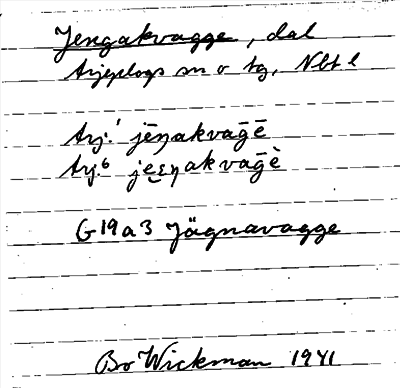 Jengakvagge, dal
Arjeplogs sn o tg, Nbt l
Arj.¹ jēŋakvaḡē
Arj.⁶ jee̮ŋakvaḡè
G19a3 Jägnavagge
Bo Wickman 1941